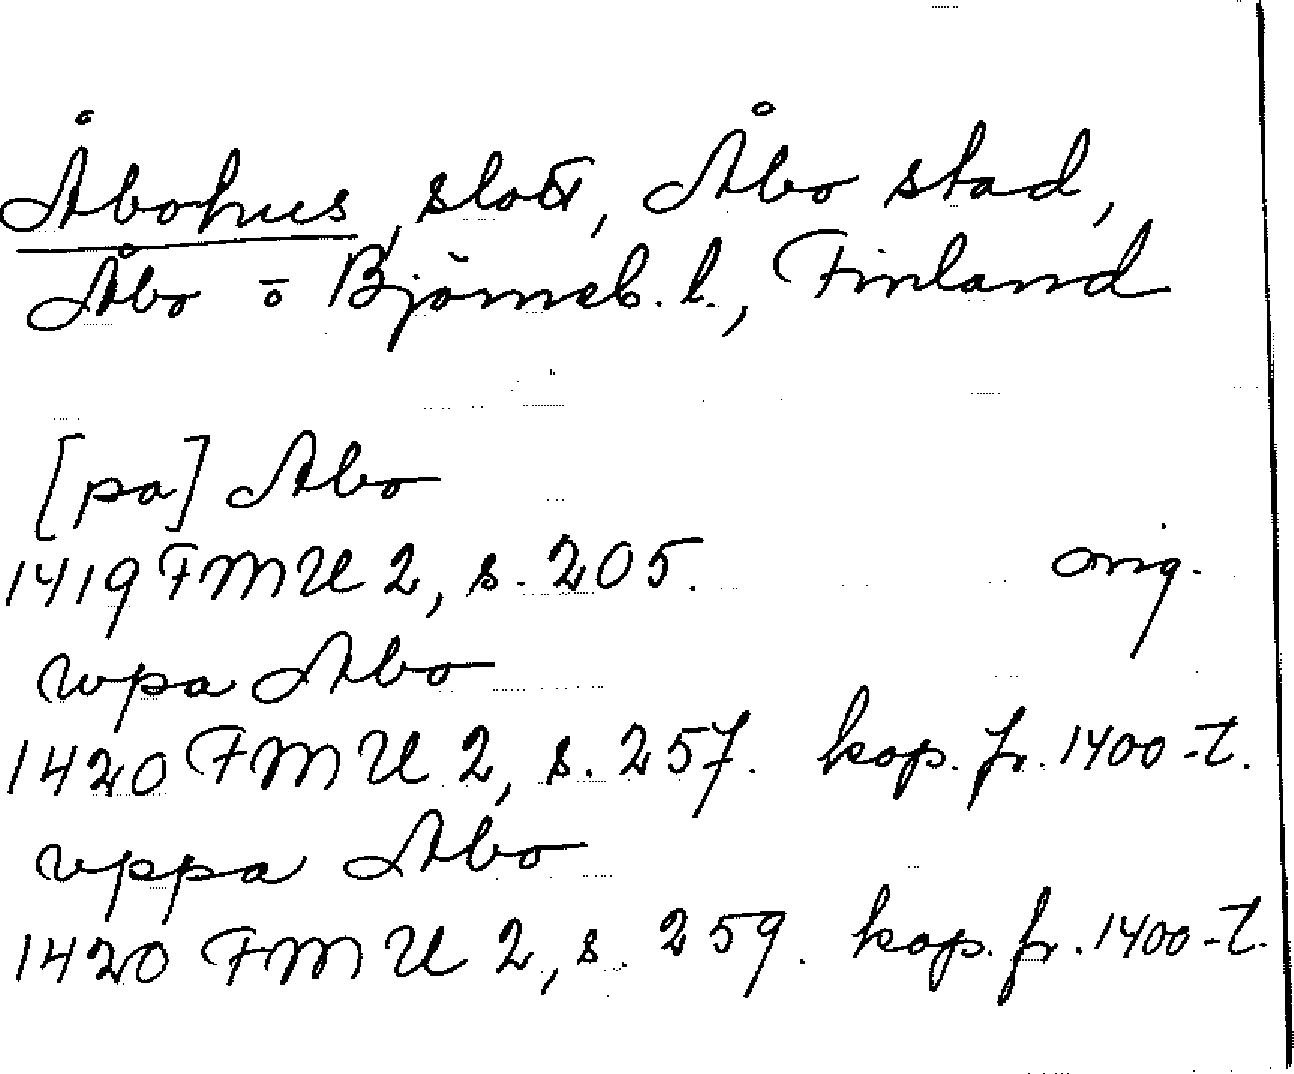 Åbohus, slott, Åbo stad,
Åbo o Björneb. l., Finland
[pa] Abo
1419 FMU 2, s. 205. orig.
wpa Abo
1420 FMU 2, s. 257. kop. fr. 1400-t.
vppa Abo
1420 FMU 2, s. 259. kop. fr. 1400-t.